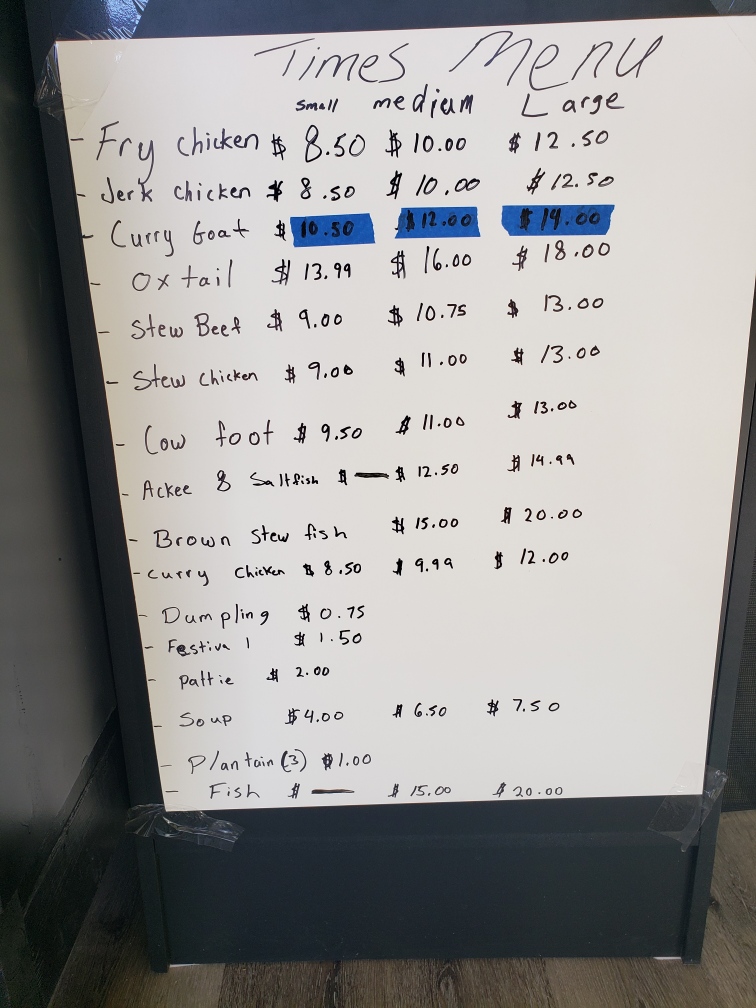 Times Menu
Small medium Large
- Fry chicken $ 8.50 $ 10.00 $ 12.50
- Jerk chicken $ 8.50 $ 10.00 $ 12.50
- Curry Goat $ 10.50 $ 12.00 $ 14.00
- Ox tail $ 13.99 $ 16.00 $ 18.00
- Stew Beef $ 9.00 $ 10.75 $ 13.00
- Stew chicken $ 9.00 $ 11.00 $ 13.00
- Cow foot $ 9.50 $ 11.00 $ 13.00
- Ackee & Saltfish $ — $ 12.50 $ 14.99
- Brown Stew fish $ 15.00 $ 20.00
- Curry Chicken $ 8.50 $ 9.99 $ 12.00
- Dumpling $ 0.75
- Festival $ 1.50
- pattie $ 2.00
- Soup $ 4.00 $ 6.50 $ 7.50
- Plantain (3) $1.00
- Fish $ — $ 15.00 $ 20.00